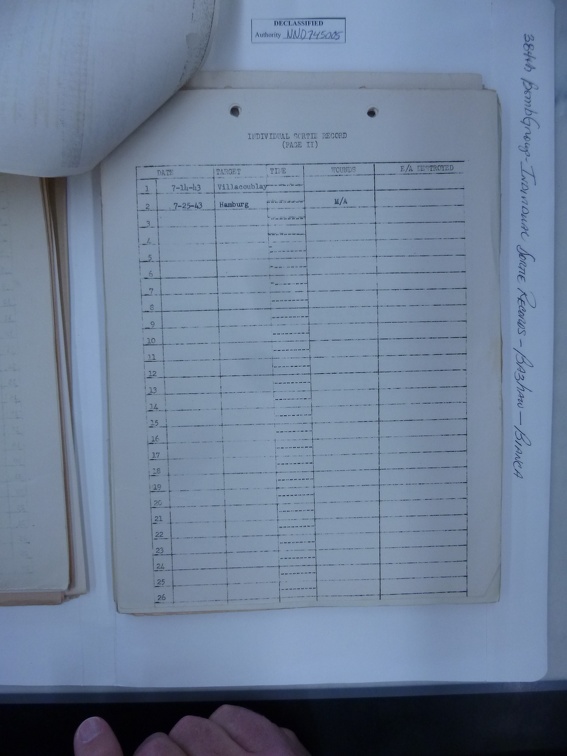 DECLASSIFIED
Authority NND745005
384th Bomb Group - Individual Sortie Records - Bazhaw - Binnka
INDIVIDUAL SORTIE RECORD
(PAGE II)
DATE TARGET TIME WOUNDS E/A DESTROYED
1 7-14-43 Villacoublay
2 7-25-43 Hamburg M/A
3
4
5
6
7
8
9
10
11
12
13
14
15
16
17
18
19
20
21
22
23
24
25
26